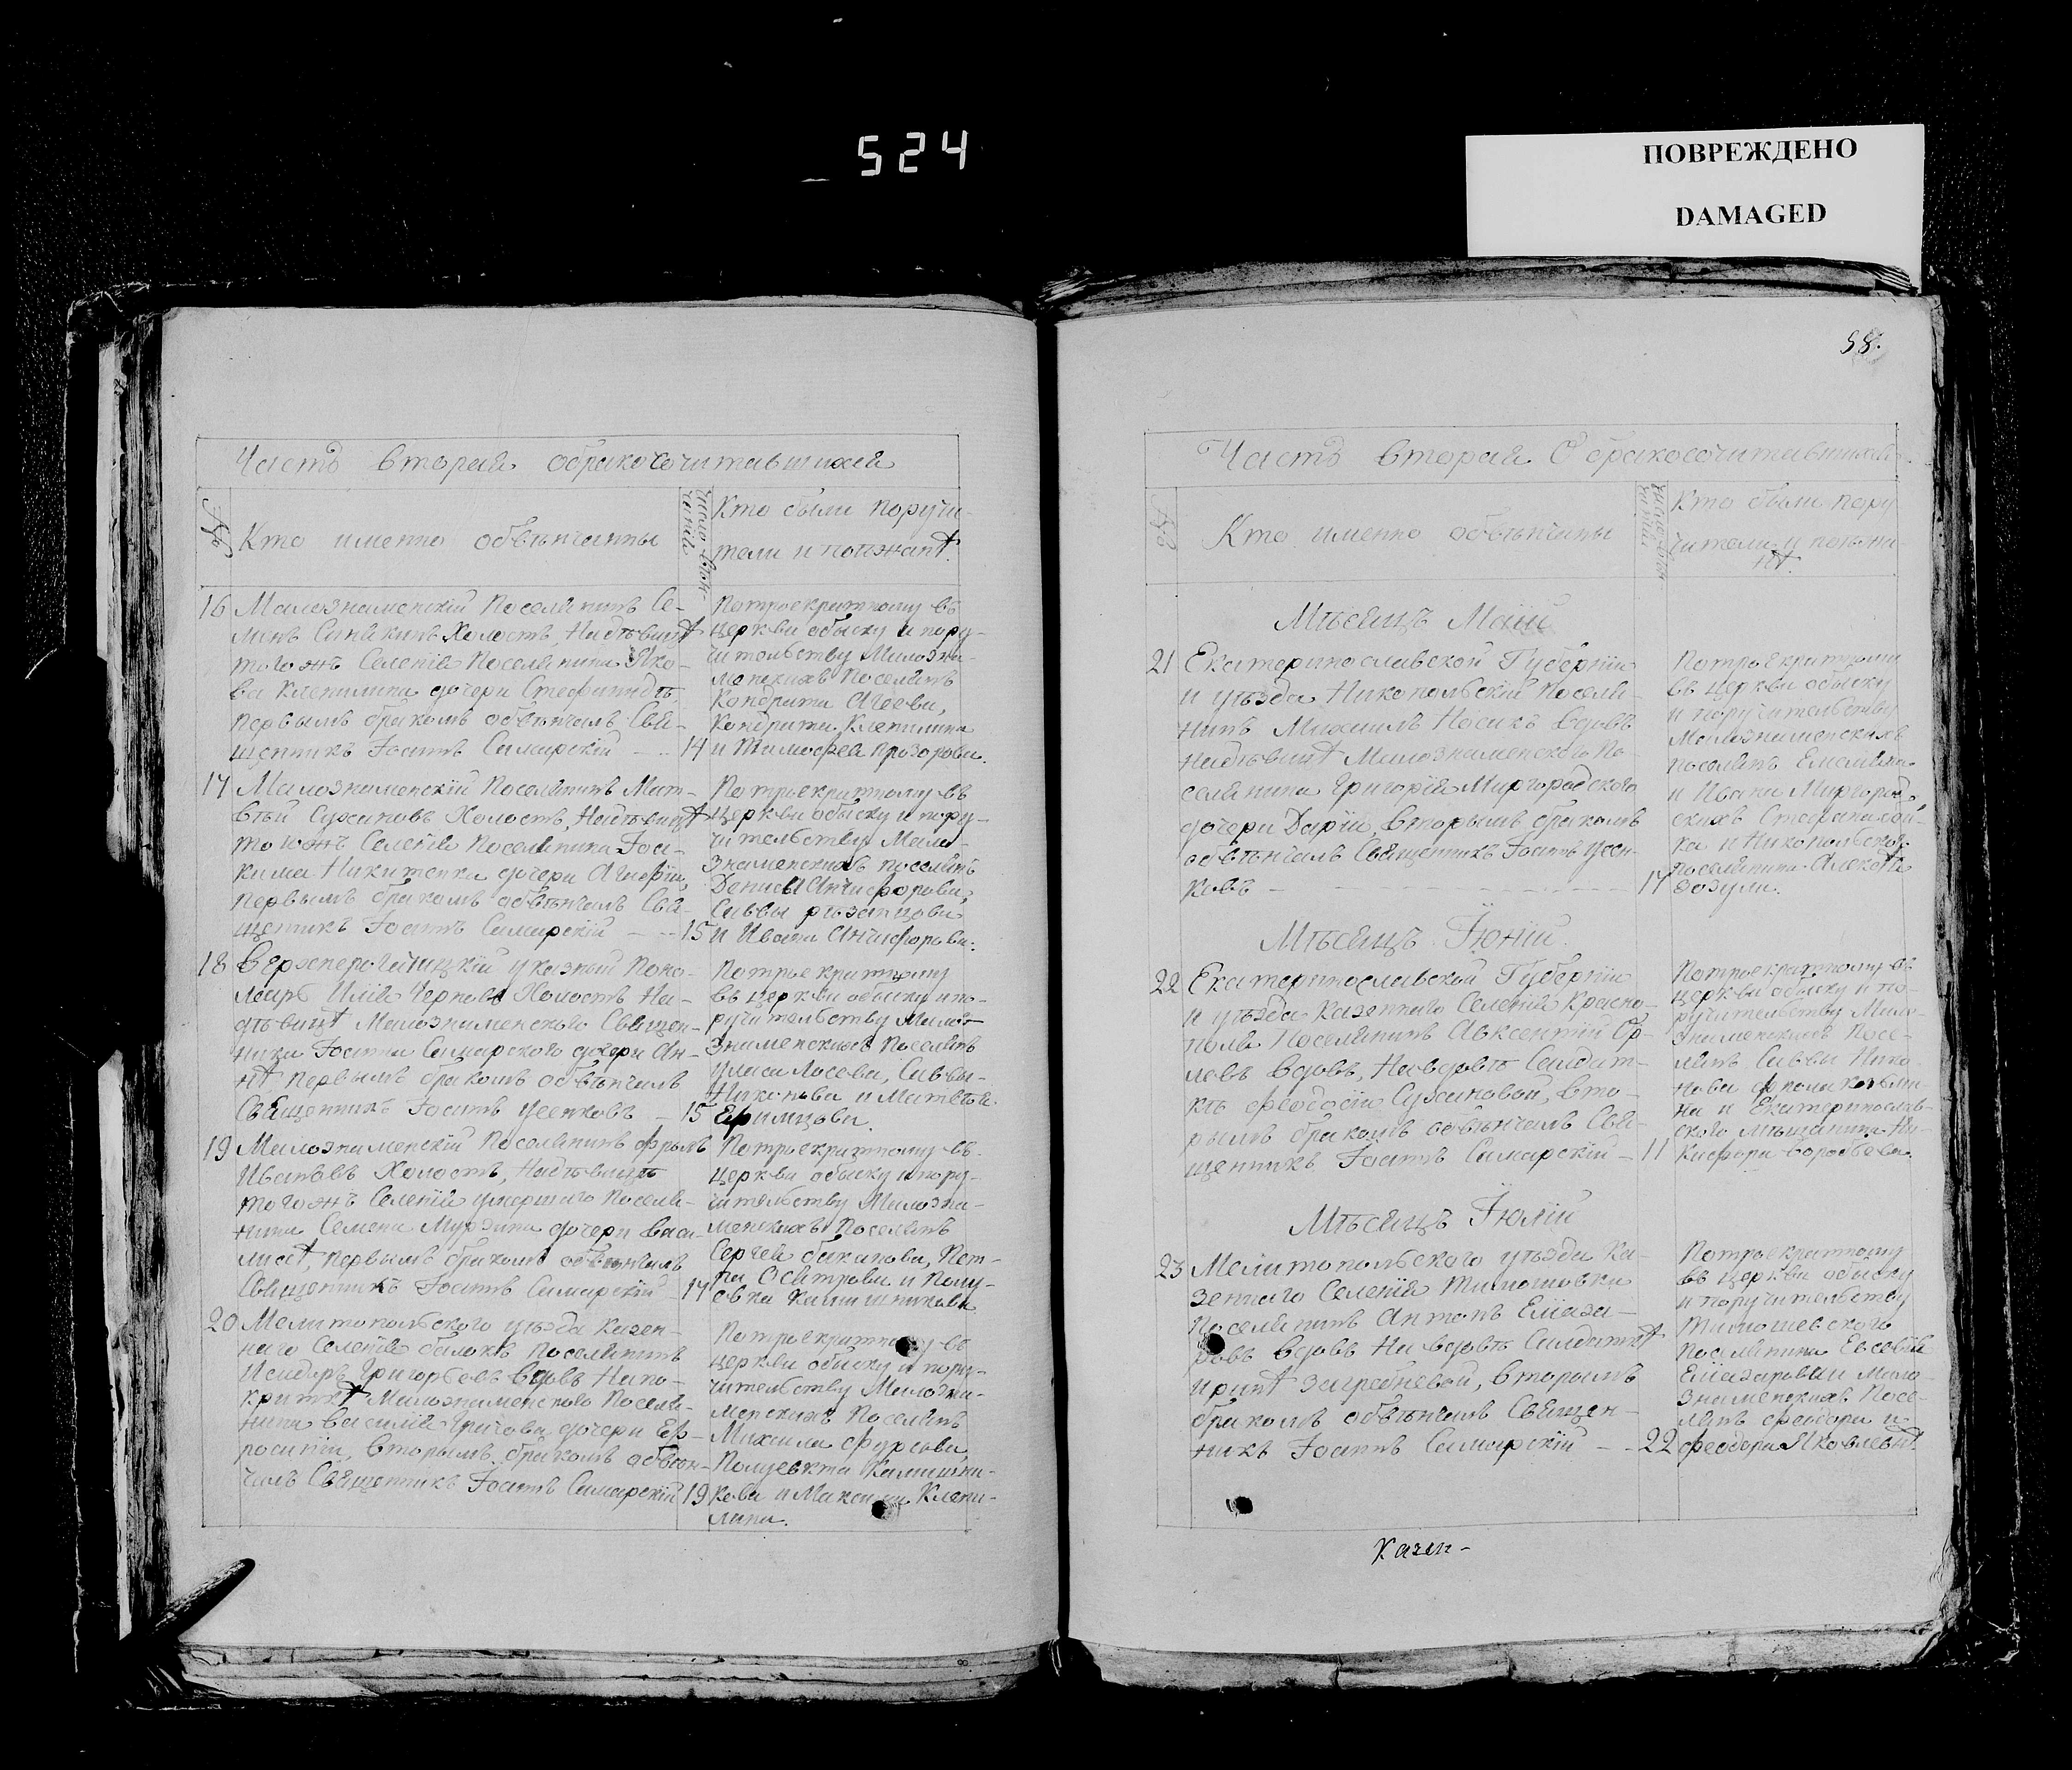 524
ПОВРЕЖДЕНО
DAMAGED
Часть вторая обракосочитавшихся
№
Кто именно обвѣнчанны
число венчанія
Кто были поручи-
тели и поезжанѣ.
16 Малознаменскій Поселянинъ Се-
Холостъ, Надѣвицѣ
тогожъ Селенія Поселянина Яко-
ва Клепилина дочери Стефанидѣ,
первымъ бракомъ обвѣнчалъ Свя-
щенникъ Іоаннъ Самарскій - - 14
Потроекратному въ
церкви обыску и пору-
чительству Малозна-
менскихъ Поселянъ
Кондрата Агеева,
Кондрата Клепилина
и Тимофея Прозорова.
17 Малознаменскій Поселянинъ Мат-
вѣй Сухановъ Холостъ, Надѣвицѣ
тогожъ Селенія Поселянина Іоа-
кима Никитенка дочери Агафіи,
первымъ бракомъ обвѣнчалъ Свя-
щенникъ Іоаннъ Самарскій - - 15
Потроекратному въ
церкви обыску и пору-
чительству Мало-
знаменскихъ поселянъ
Дениса Анчифорова,
Саввы рѣзанцова
и Ивана Анчифорова.
18 Верхнерогачицкій указный Поно-
марь Илія Черновъ Холостъ На-
дѣвицѣ Малознаменского Священ-
ника Іоанна Самарского дочери Ан-
нѣ первымъ бракомъ обвѣнчалъ
Священникъ Іоаннъ Усенковъ - 15
Потроекратному
въ церкви обыску ипо-
ручительству Мало-
знаменскихъ Поселянъ
Уласа Лосева, Саввы
Никонова и Матвея
Ефимцова.
19 Малознаменскій Поселянинъ Фролъ
Ивановъ Холостъ, Надѣвицѣ
тогожъ Селенія умершаго Поселя-
нина Семена Мурзина дочери Васи-
лисѣ, первымъ бракомъ обвѣнчалъ
Священникъ Іоаннъ Самарскій - 17
Потроекратному въ
церкви обыску и пору-
чительству Малозна-
менскихъ Поселянъ
Сергея баканова, Пет-
ра Осетрова и Полу-
евка Калашникова
20 Мелитопольского уѣзда казен-
наго Селенія балокъ поселянинъ
Исидоръ Григорьевъ Вдовъ Напо-
криткѣ Малознаменского Поселя-
нина Василія Грачова дочери Еф-
росиніи, вторымъ бракомъ обвѣн-
чалъ Священникъ Іоаннъ Самарскій 19
Потроекратному въ
церкви обыску и пору-
чительству Малозна-
менскихъ Поселянъ
Михаила Фурсова,
Полуевкта Калашни-
кова и Максима Клепи-
лина.
58.
Часть вторая О бракосочитавшихся.
№
Кто именно обвѣнчаны
число венчанія
Кто были пору
чители и поѣзжа-
нѣ.
Мѣсяцъ Маій
21 Екатеринославской Губерніи
и уѣзда Никопольскій поселя-
нинъ Михаилъ Носикъ вдовъ
надѣвицѣ Малознаменского По
селянина Григорія Миргородского
дочери Даріи, вторымъ бракомъ
обвѣнчалъ Священникъ Іоаннъ Усен-
ковъ - - - 17
Потроекратному
въ церкви обыску
и поручительству
Малознаменскихъ
поселянъ Емельяна
и Ивана Миргород-
скихъ
ка и Никопольского
поселянина Алексѣя
Зозули.
Мѣсяцъ Іюній
22 Екатеринославской Губерніи
и уѣзда Казеннаго Селенія Красно-
поля Поселянинъ Авксентій Ор-
ловъ Вдовъ, На вдовѣ Салдат-
кѣ Феодосіи Сухановой, вто-
рымъ бракомъ обвѣнчалъ Свя-
щенникъ Іоаннъ Самарскій - 11
Потроекратному въ
церкви обыску и по-
ручительству Мало-
знаменскихъ Посе-
лянъ Саввы Нико-
нова
на и Екатеринослав-
ского мѣщанина Ни-
кифора Воробьева.
Мѣсяцъ Іюлій
23 Мелитопольского уѣзда Ка-
зеннаго Селенія Тимошовки
Поселянинъ Антонъ Елиаза-
ровъ вдовъ На вдовѣ Салдаткѣ
иринѣ Загребневой, вторымъ
бракомъ обвѣнчалъ Священ-
никъ Іоаннъ Самарскій - - 22
Потроекратному
въ церкви обыску
и поручительству
Тимошевского
Поселянина Евсевія
Елиазарова и Мало-
знаменскихъ Посе-
лянъ Феодора и
Феодора Яковлевѣ.
Казен-